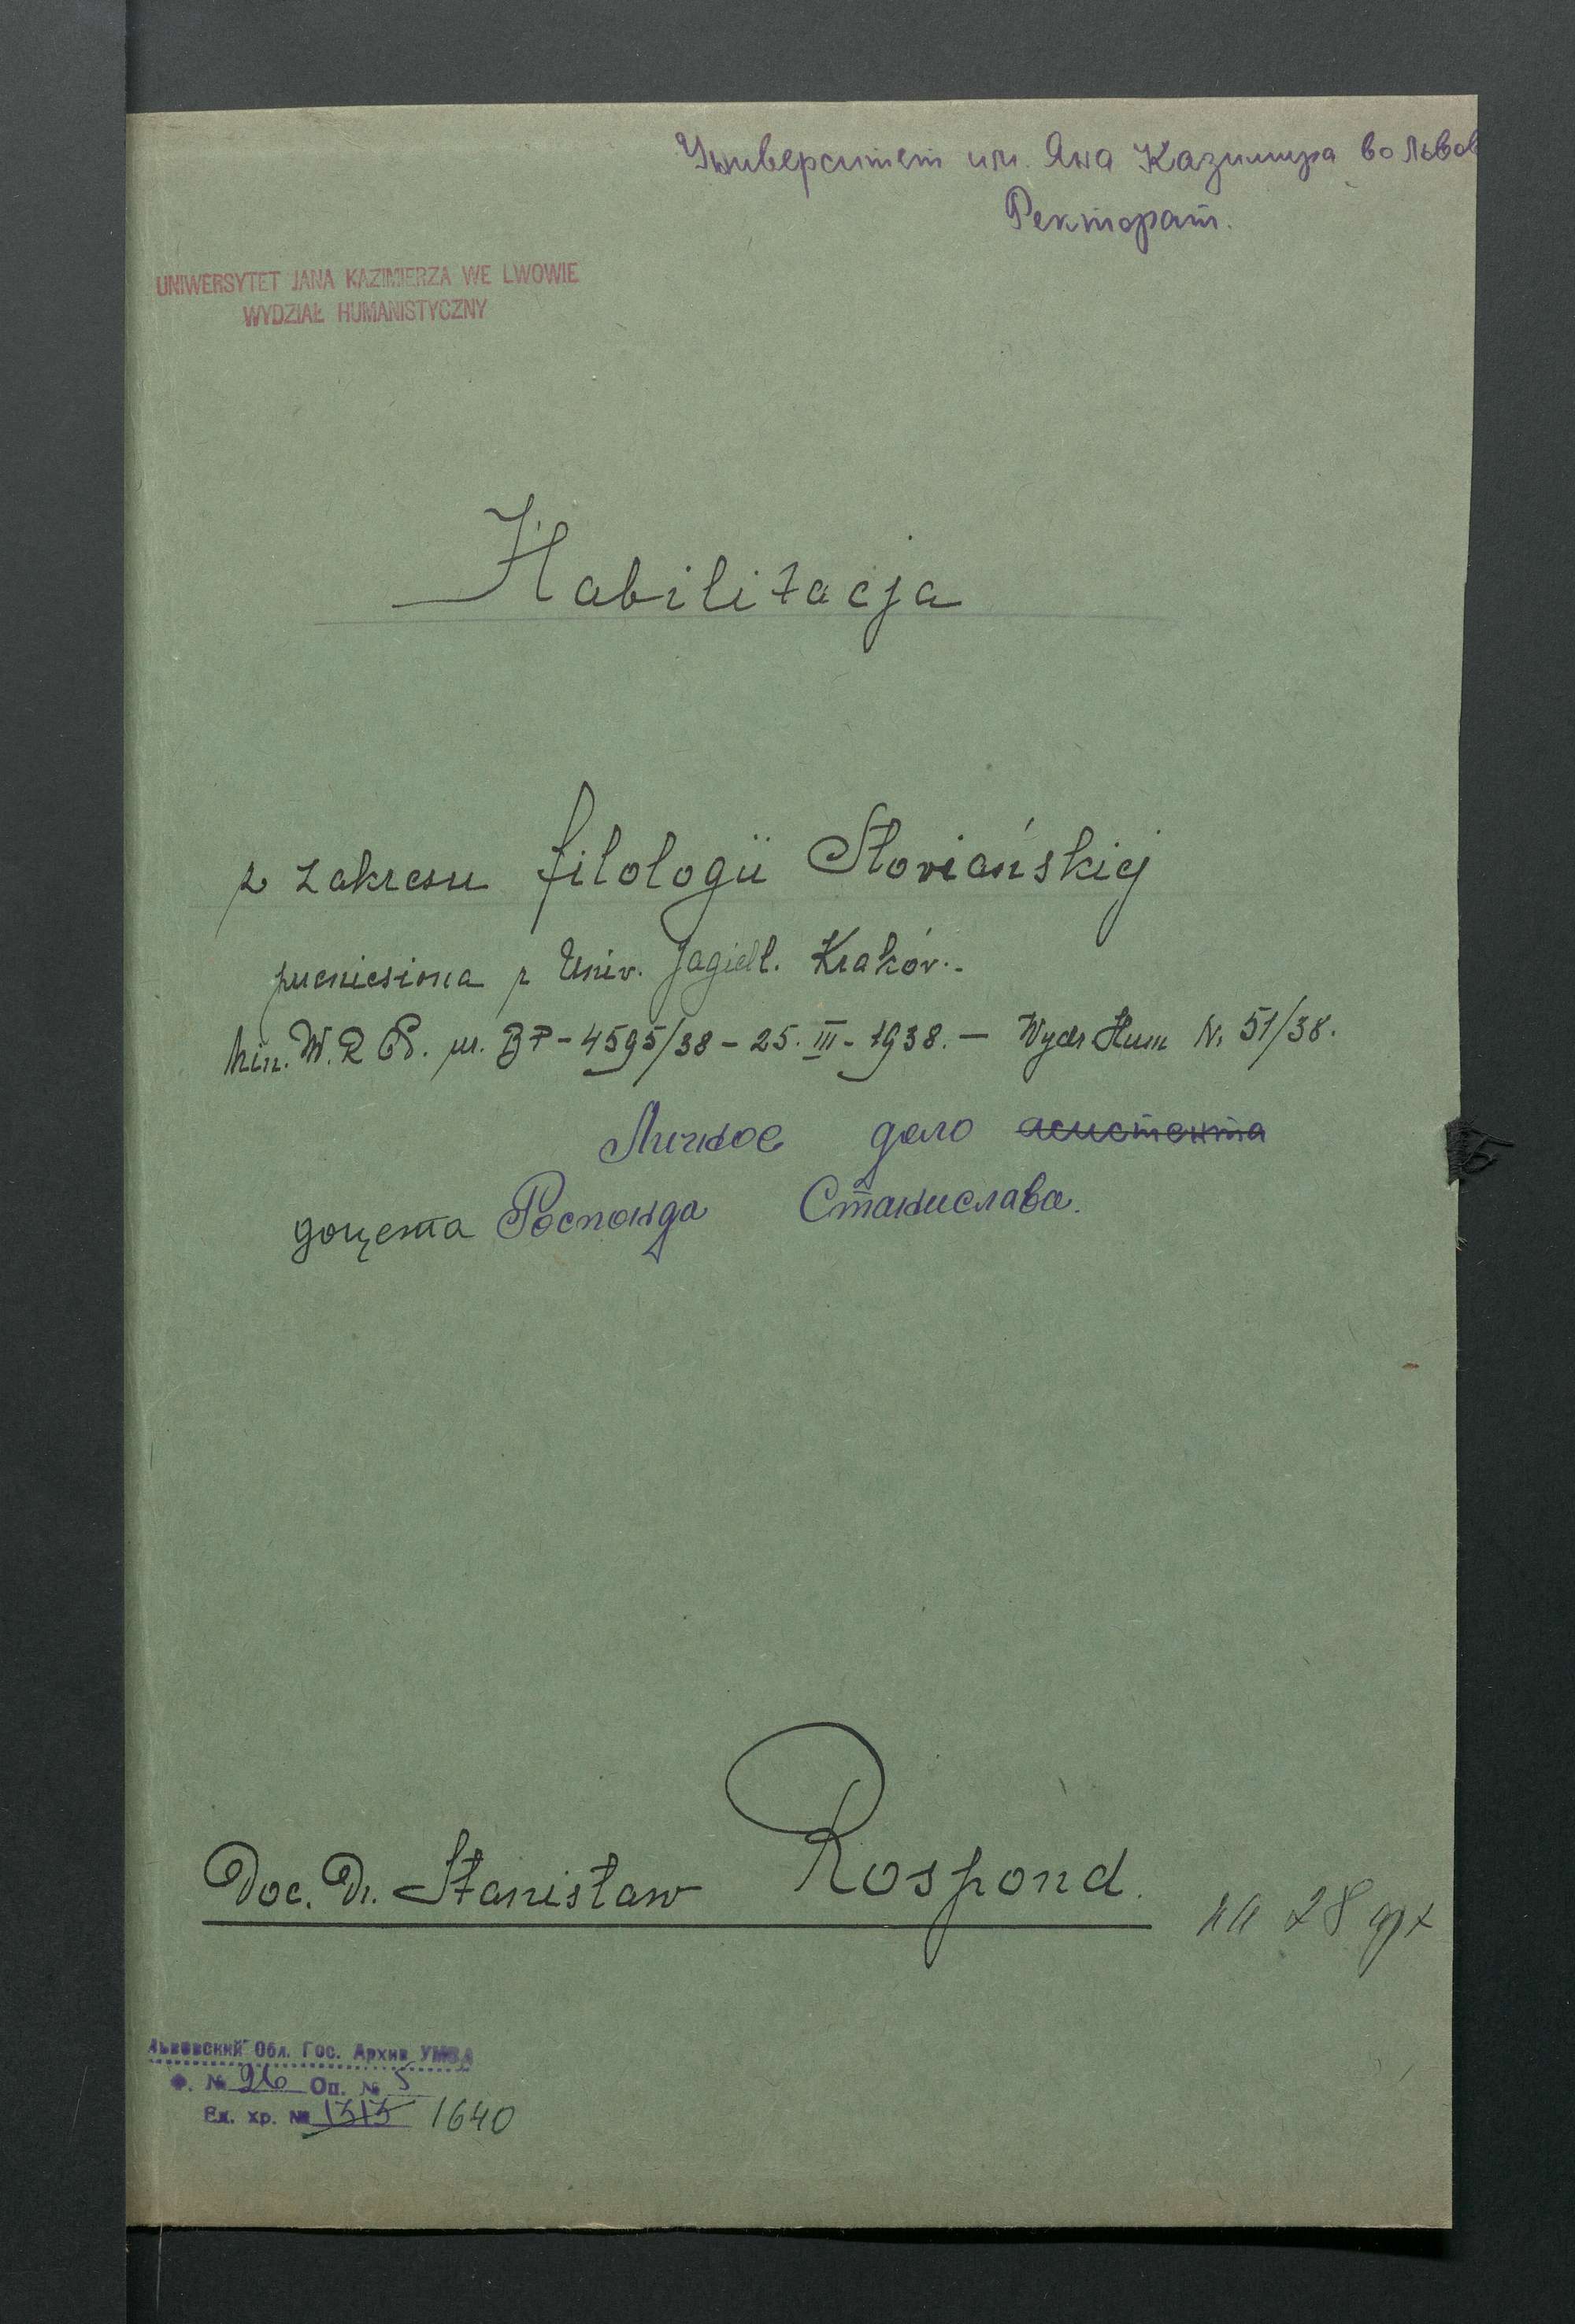 Университет им. Яна Казимира во Львов
Ректорат.
UNIWERSYTET JANA KAZIMIERZA WE LWOWIE
WYDZIAŁ HUMANISTYCZNY
Habilitacja
z zakresu filologii Słowiańskiej
przeniesiona z Univ. Jagiell. Kraków.-
Min. W. R. i O. P. nr. BP-4595/38 - 25. III - 1938. — Wydz Hum N. 51/38.
Личное дело асистента
доцентаРоспонда Станислава.
Doc. Dr. Stanisław Rospond.
на 28
Львовский Обл. Гос. Архив УМВД
Ф. № 26 Оп. № 5
Ед. хр. № 1313 1640